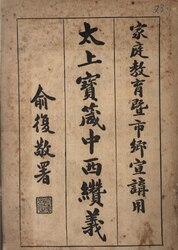 家庭教育暨市鄉宣講用
太上寶箴中西纘義
俞復敬署